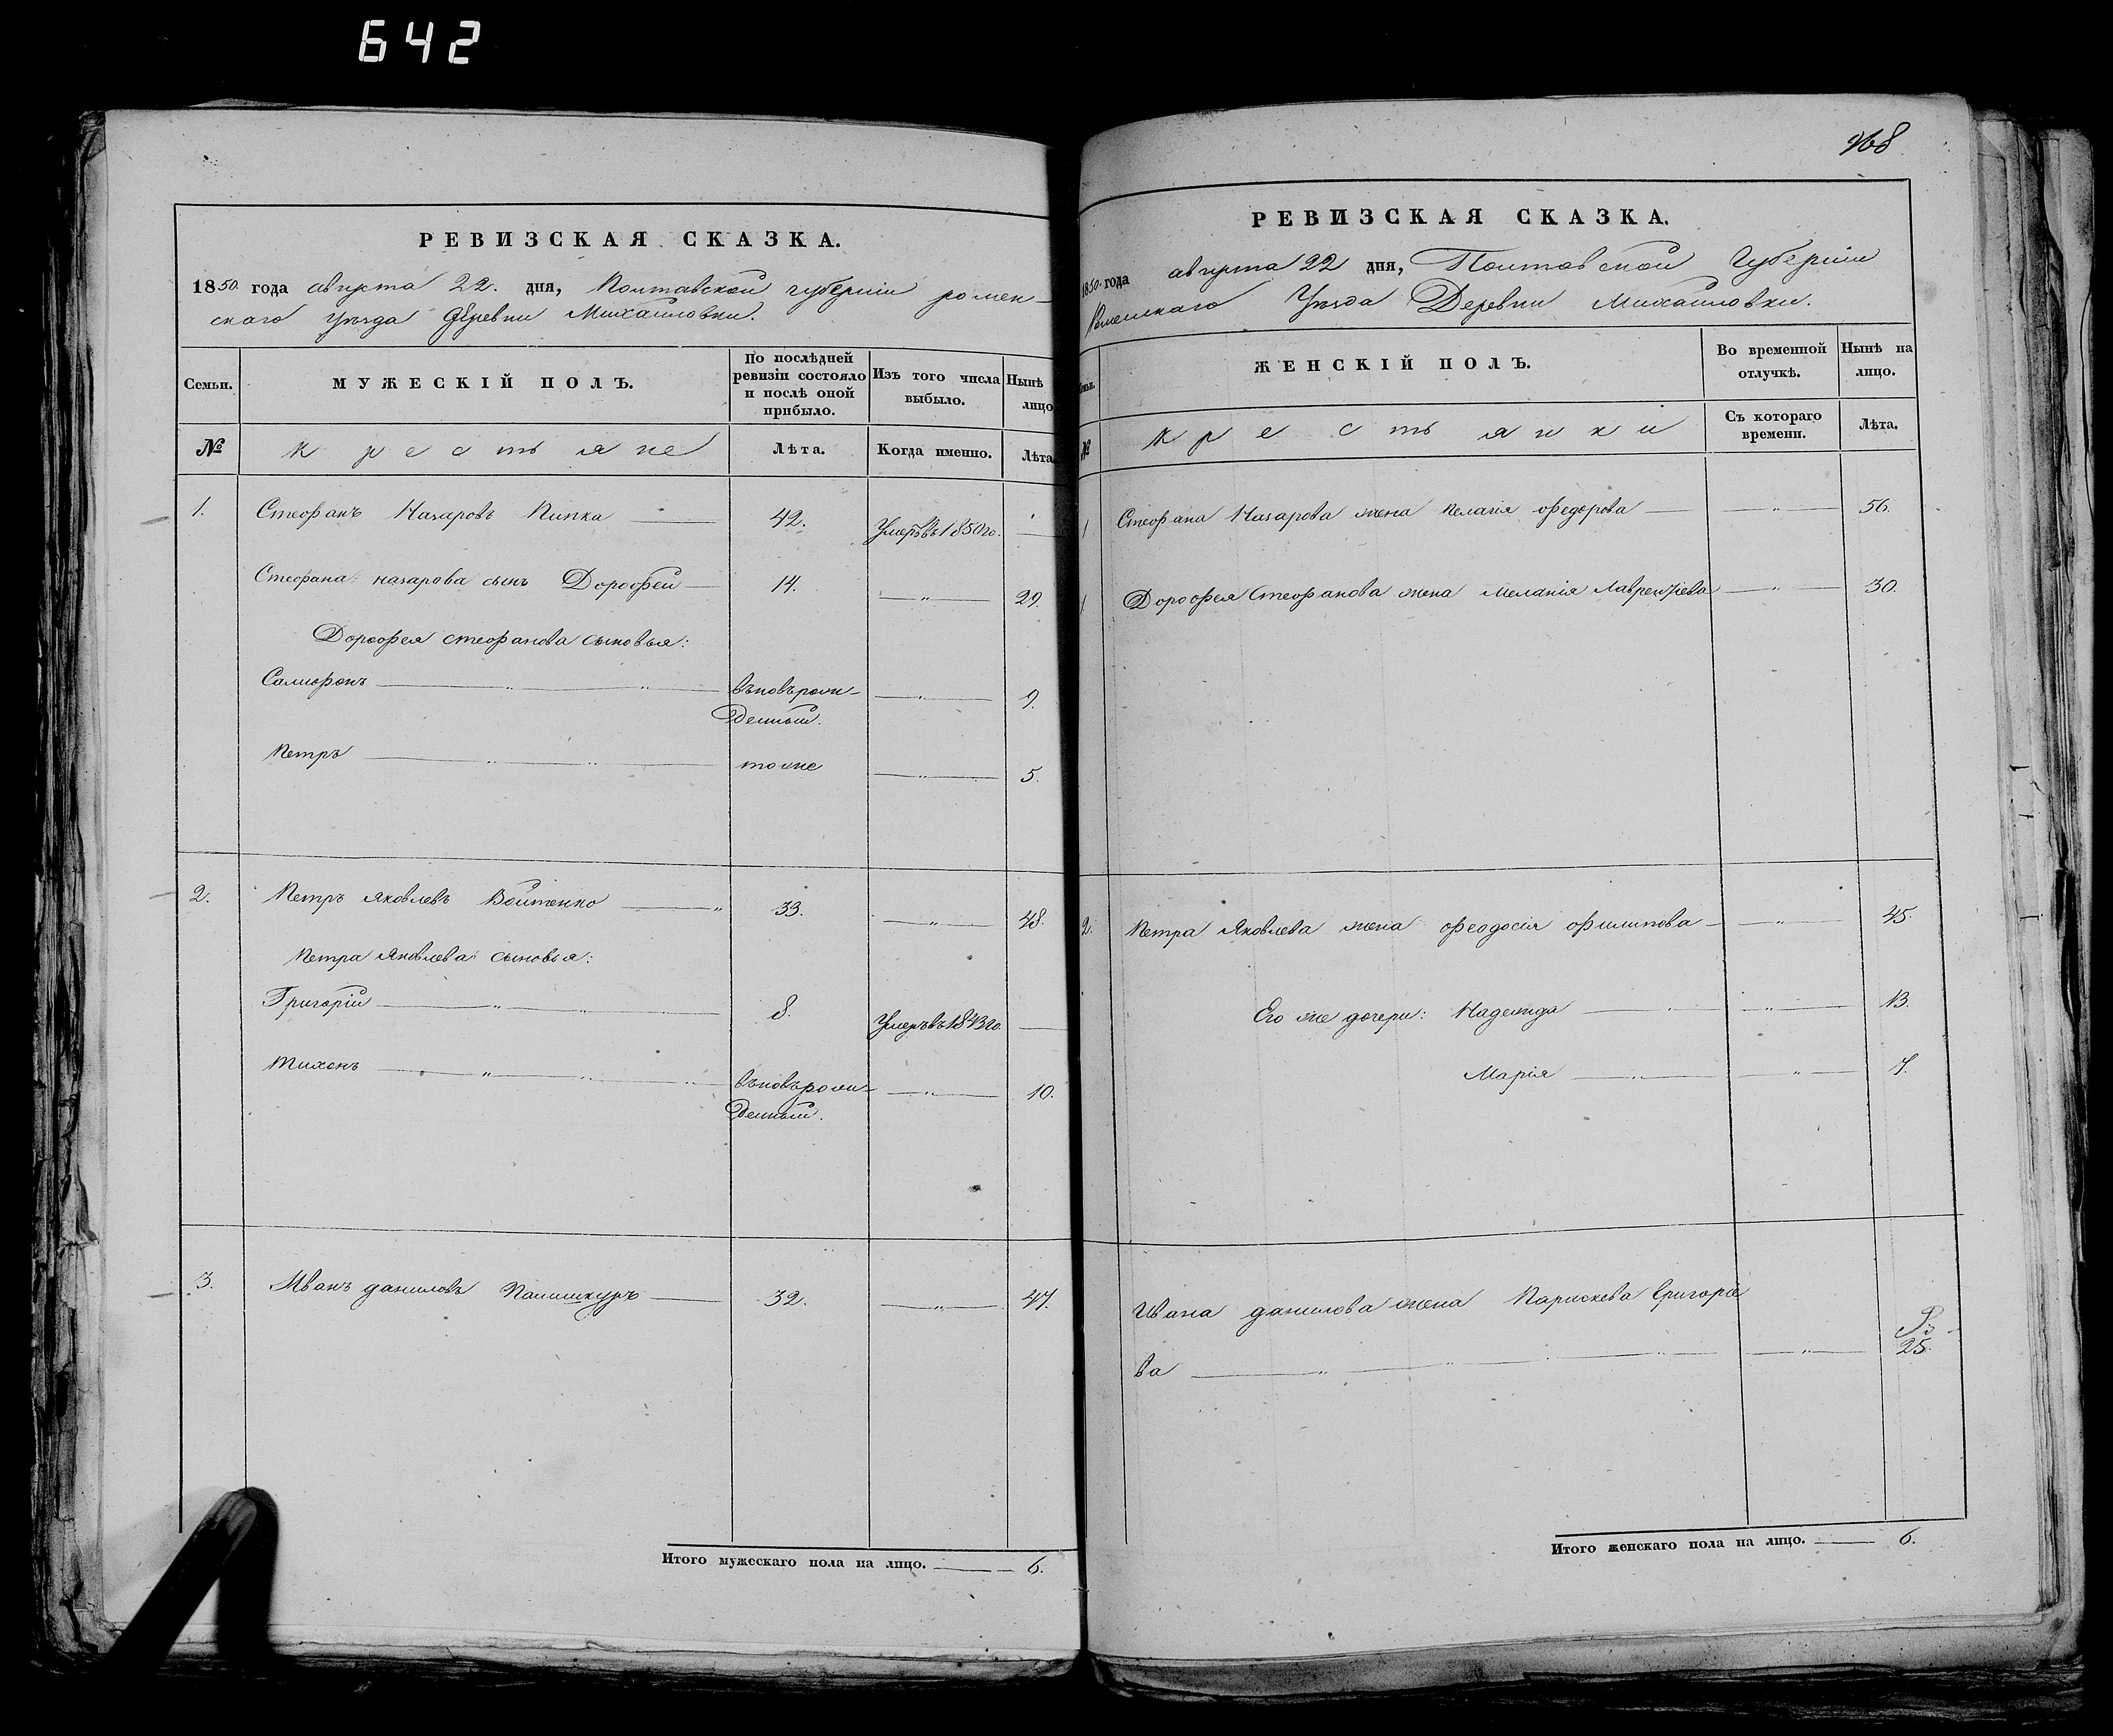 642
РЕВИЗСКАЯ СКАЗКА.
1850 года августа 22. дня, Полтавской губерніи ромен-
скаго уѣзда деревни Михайловки.
Семьи.
МУЖЕСКІЙ ПОЛЪ.
По послѣдней ревизіи состояло и послѣ оной прибыло.
Изъ того числа выбыло.
Нынѣ
лицо
№
крестьяне
Лѣта.
Когда именно.
Лѣта
1. Стеофанъ Назаровъ Пипка 42. Умеръ въ 1850го.
Стеофана назарова сынъ Дорофей 14. „ 29.
Дорофея стеофанова сыновья:
Самофонъ „ „ вновьрож-
денный. „ 9.
Петръ „ „ тоже „ 5.
2. Петръ яковлевъ Войтенко „ 33. „ 48.
Петра яковлева сыновья:
Григорій „ 8. Умеръ въ 1843го.
Тихонъ „ „ „ вновьрож-
денный. „ 10.
3. Иванъ даниловъ Палишкуръ 32. „ 47.
Итого мужескаго пола на лицо. 6.
968
РЕВИЗСКАЯ СКАЗКА.
1850 года августа 22 дня, Полтавской Губерніи
Роменскаго Уѣзда Деревни Михайловки.
ЖЕНСКІЙ ПОЛЪ.
Во временной отлучкѣ.
Нынѣ на лицо.
№
крестьянки
Съ котораго времени.
Лѣта.
1 Стеофана Назарова жена Пелагія Федорова „ 56.
1 Дорофея Стеофанова жена Меланія Лаврентіева „ 30.
2. Петра Яковлева жена феодосія филипова „ 45.
Его же дочери: Надежда „ „ 13.
Марія „ „ 7.
Ивана данилова жена Параскева Григоріе
ва „ „ „ „ „ 25.
Итого женскаго пола на лицо. 6.